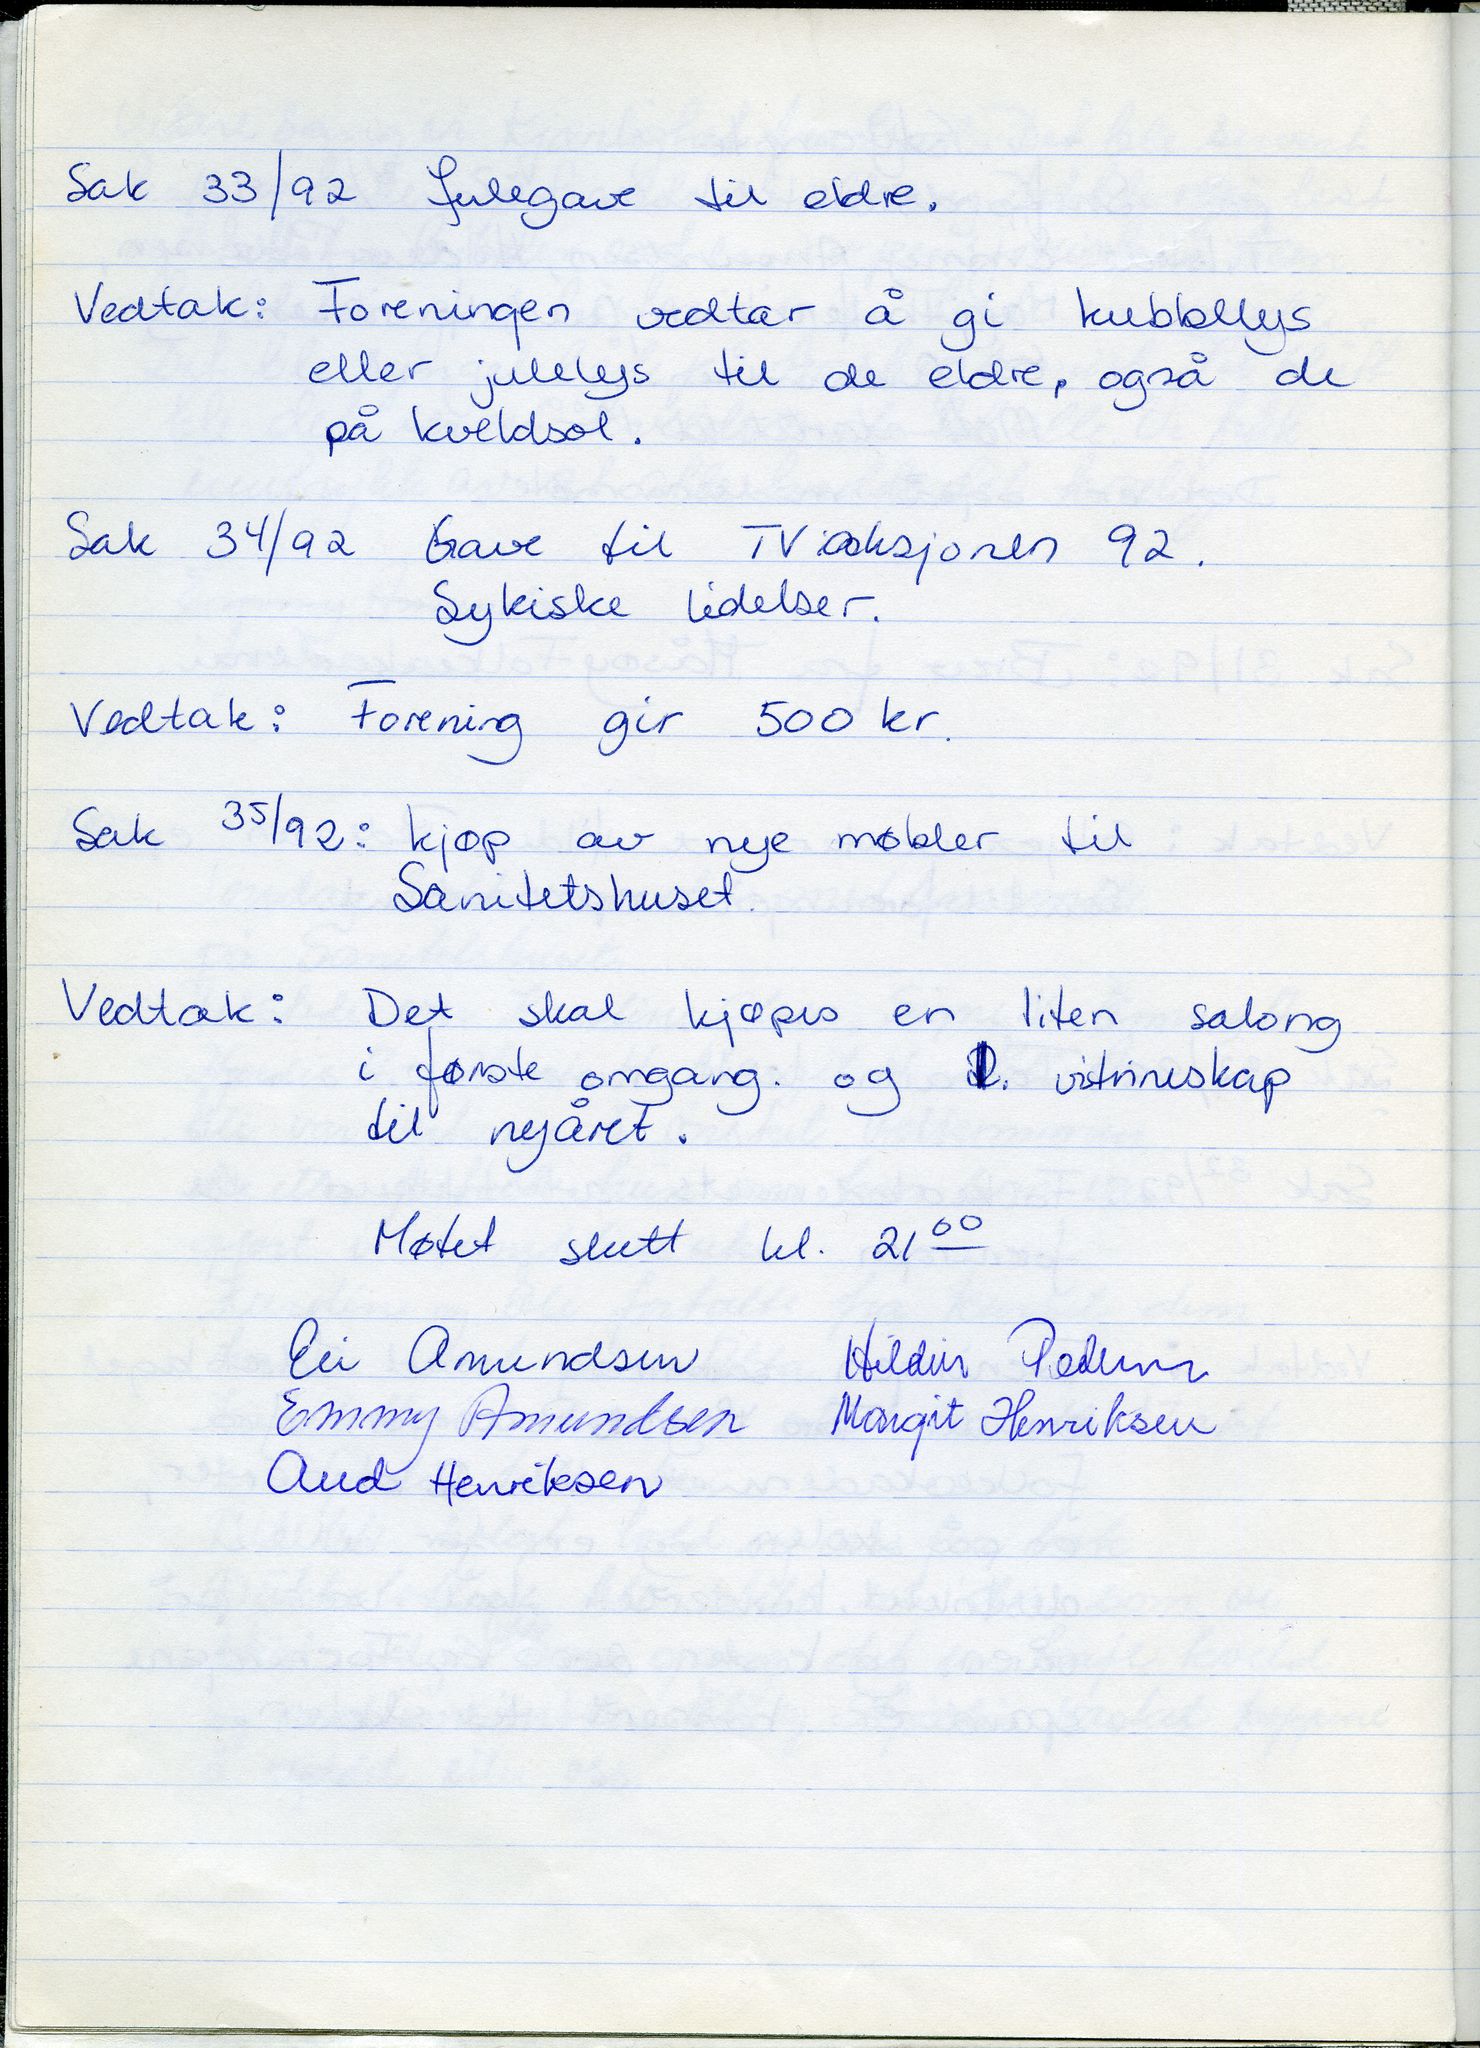 Sak 33/92 Julegave til eldre.
Vedtak: Foreningen vedtar å gi kubbelys
eller julelys til de eldre, også de
på kveldsol.
Sak 34/92 Gave til TVaksjonen 92.
Sykiske lidelser.
Vedtak: Forening gir 500 kr.
Sak 35/92: kjøp av nye møbler til
Sanitetshuset.
Vedtak: Det skal kjøpes en liten salong
i første omgang. og 2. vitrineskap
til nyåret.
Møtet slutt kl. 21 00
Eli Amundsen Hildur Pedersen
Emmy Amundsen Margit Henriksen
Aud Henriksen